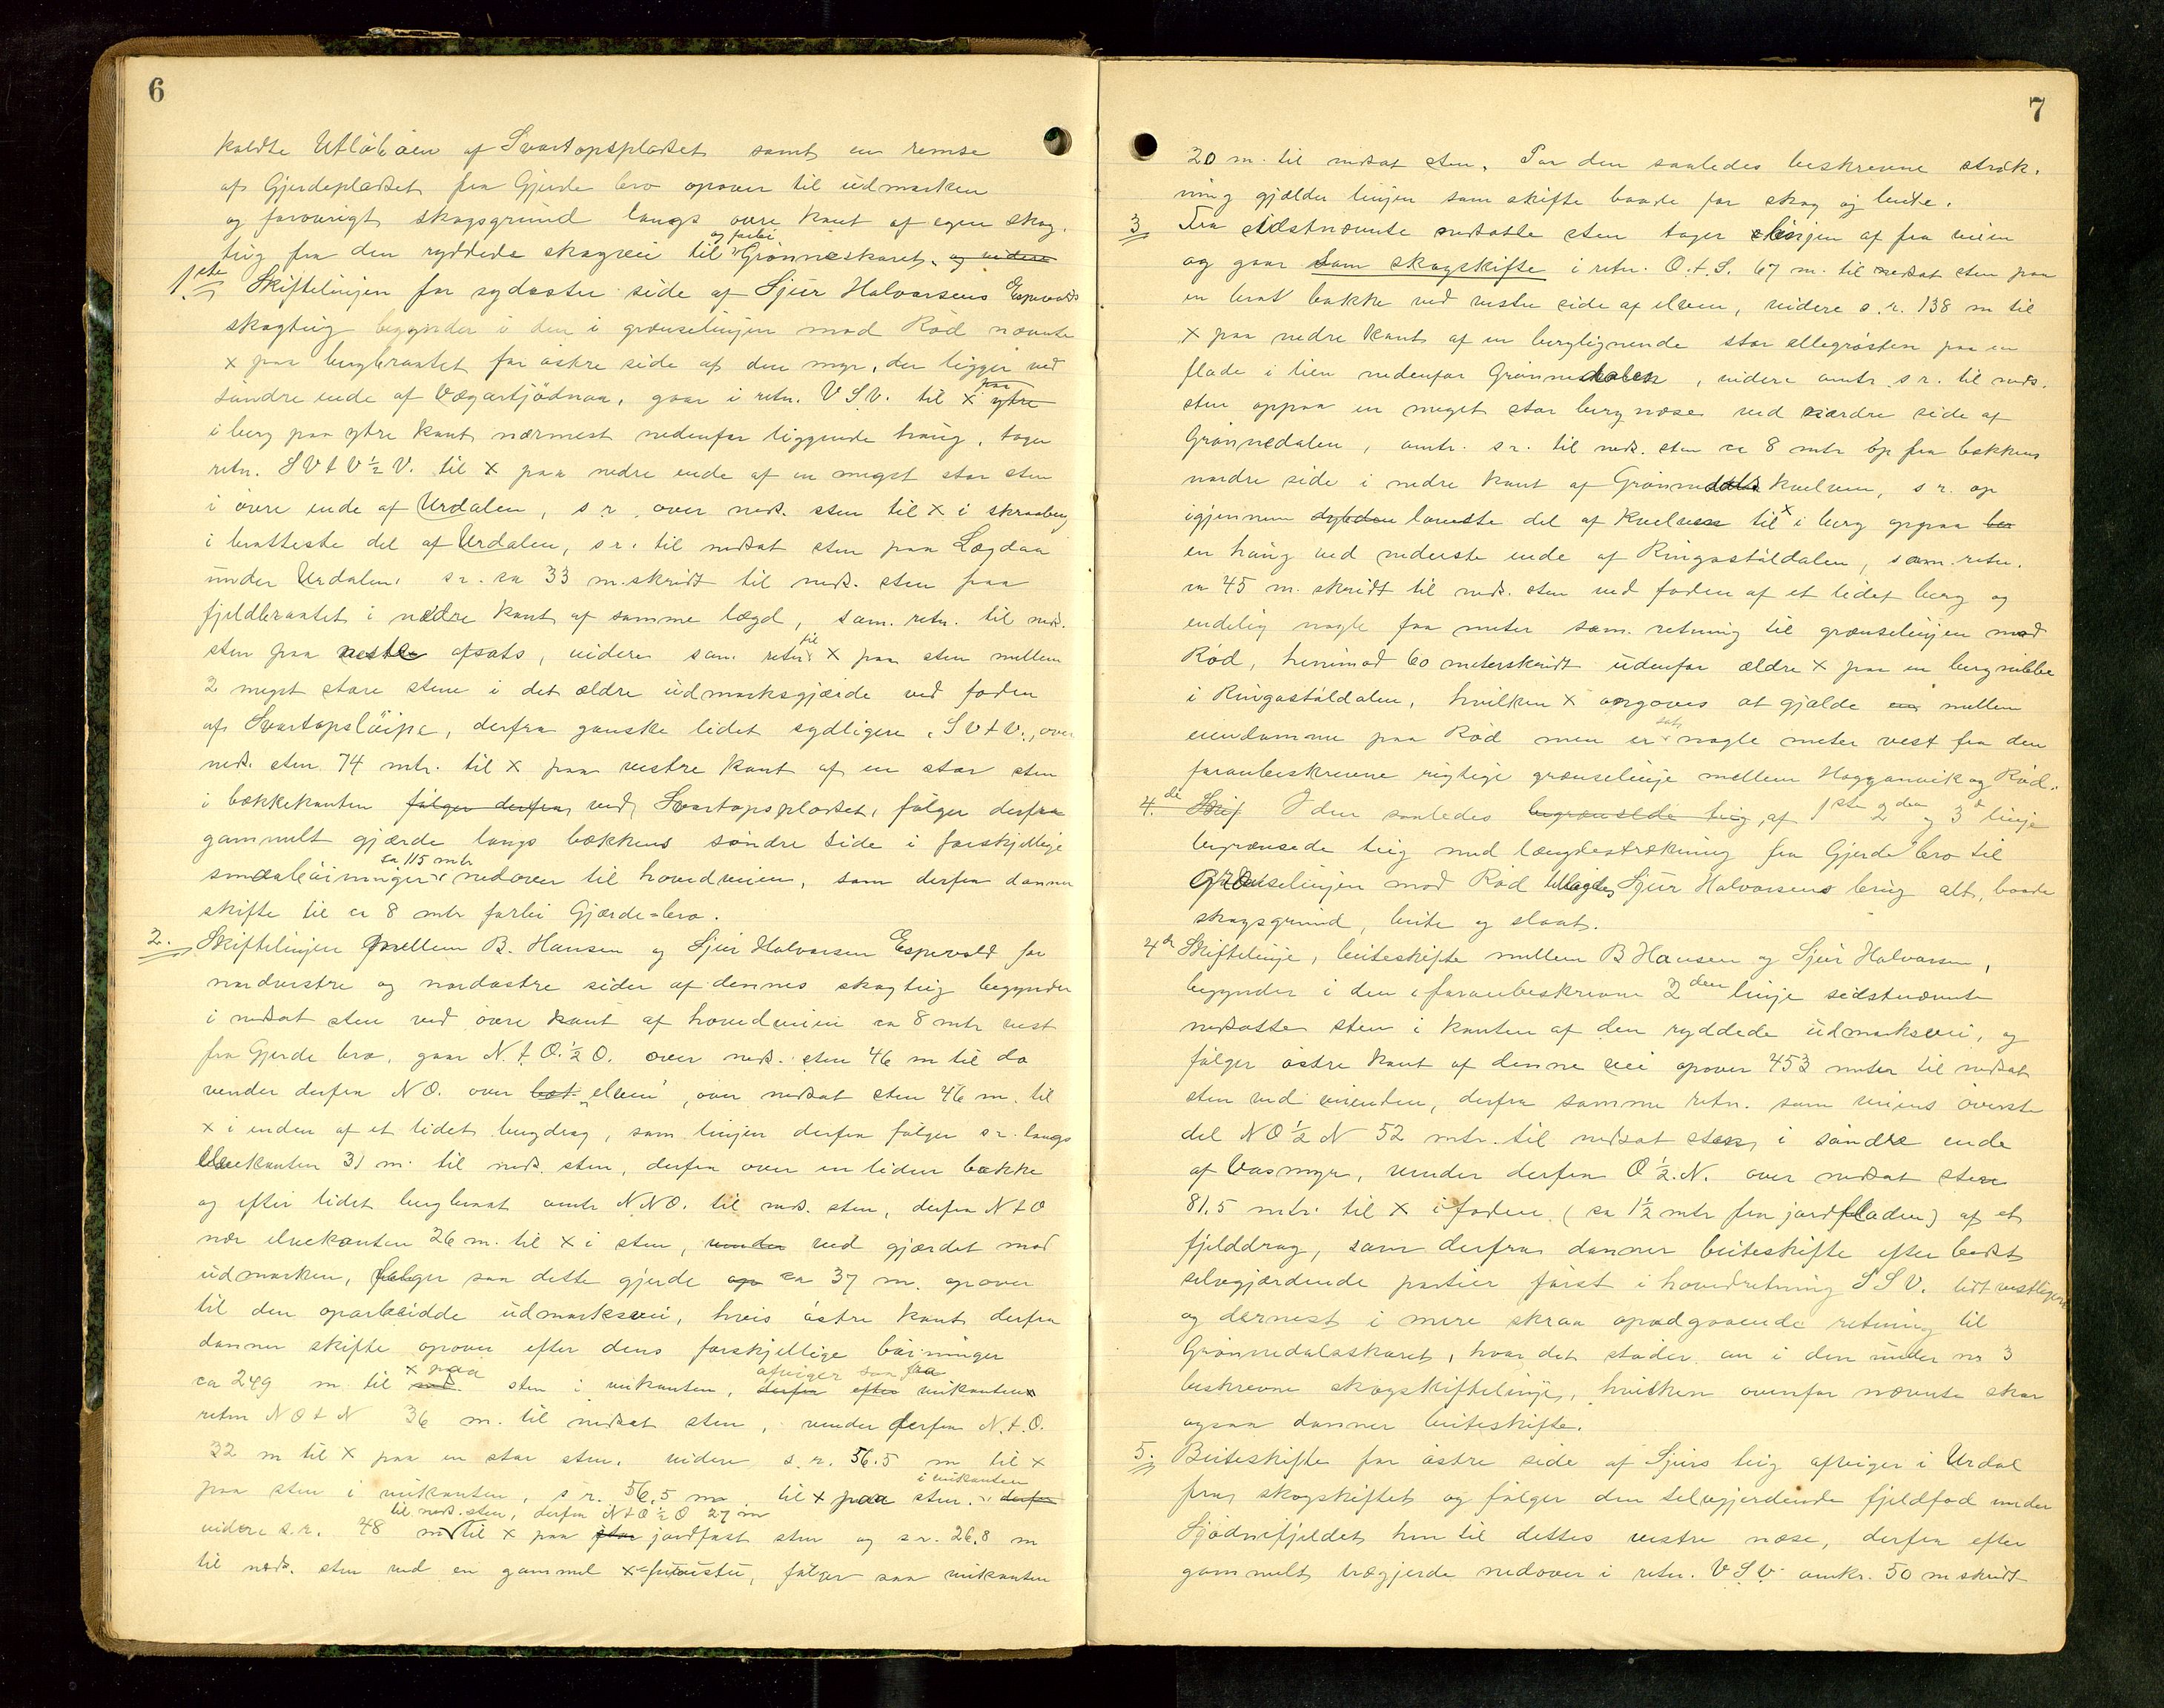 6
kaldte Utlöbáen af Svartopspladset samt en remse
af Gjerdepladset fra Gjerde bro opover til udmarken
og forövrigt skogsgrund langs övre kant af egen skog.
og forbi
teig fra den ryddede skogvei til Grönneskaret. og videre
1ste Skiftelinjen for sydöster side af Sjur Halvorsens Espevolds
skogteig begynder i den i grænselinjen mod Röd nævnte
x paa bergbrautet for östre side af den myr, der ligger ved
paa
söndre ende af Vegartjödnaa, gaar i retn. VSV. til x ytre
i berg paa ytre kant nærmest nedenfor liggende haug, tager
retn. SVtV½V. til x paa nedre ende af en meget stor sten
i övre ende af Urdalen, s r. over neds. sten til x i skraaberg
i bratteste del af Urdalen, s r. til nedsat sten paa Lægdaa
under Urdalen. s r. ca 33 m.skridt til neds. sten paa
fjeldbrautet i nedre kant af samme lægd, sam. retn. til neds.
til
sten paa neste afsats, videre sam. retn. x paa sten mellem
2 meget store stene i det ældre udmarksgjærde ved foden
af Svartopslöipe, derfra ganske lidet sydligere, SVtV., over
neds. sten 74 mtr. til x paa vestre kant af en stor sten
i bækkekanten fölger derfra ved Svartopspladset, fölger derfra
gammelt gjærde langs bækkens söndre side i forskjellige
ca 115 mtr
smaaböininger nedover til hovedveien, som derfra danner
skifte til ca 8 mtr forbi Gjærde-bro.
2. Skiftelinjen mellem B. Hansen og Sjur Halvorsen Espevold for
nordvestre og nordöstre sider af dennes skogteig begynder
i nedsat sten ved övre kant af hovedveien ca 8 mtr vest
fra Gjerde bro, gaar N.t.O.½O. over neds. sten 46 m til do
vender derfra NO. over bæk elven, over nedsat sten 46 m. til
x i enden af et lidet bergdrag, som linjen derfra fölger s r. langs
elvekanten 31 m. til neds. sten, derfra over en liden bakke
og efter lidet bergbraut omtr NNO. til neds. sten, derfra NtO
nær elvekanten 26 m. til x i sten, vender ved gjærdet mod
udmarken, fölger saa dette gjerde op ca 37 m. opover
til den oparbeidde udmarksvei, hvis östre kant derfra
danner skifte opover efter dens forskjellige böininger
x paa afviger saa fra
ca 249 m til neds. sten i veikanten, derfra efter veikanten
retn NOtN 36 m. til nedsat sten, vender derfra N.t.O.
32 m til x paa en stor sten. videre s. r. 56.5 m til x
i veikanten
paa sten i veikanten, s r. 56.5 m til x paa sten. derfra
til neds. sten, derfra NtO½O 27 m
videre s.r. 48 m til x paa stor jordfast sten og s r. 26.8 m
til neds. sten ved en gammel x , fölger saa veikanten
7
20 m. til nedsat sten. For den saaledes beskrevne stræk.
ning gjælder linjen som skifte baade for skog og beite.
3 Fra sidstnævnte nedsatte sten tager linjen af fra veien
og gaar som skogskifte i retn. O.t.S. 67 m. til nedsat sten paa
en brat bakke ved vestre side af elven, videre s. r. 138 m til
x paa nedre kant af en berglignende stor sten paa en
flade i lien nedenfor Grönnedalen, videre omtr. s r. til neds.
sten oppaa en meget stor bergnæse ved nordre side af
Grönnedalen, omtr. s r. til neds. sten ca 8 mtr op fra bækkens
nordre side i nedre kant af Grönnedals kvelven, s r. op
igjennem dybden laveste del af kvelven til x i berg oppaa
en haug ved nederste ende af Ringastöldalen, sam. retn.
ca 45 m. skridt til neds. sten ved foden af et lidet berg og
endelig nogle faa meter sam. retning til grænselinjen mod
Röd, henimod 60 meterskridt udenfor ældre x paa en bergnibbe
i Ringastöldalen, hvilken x opgoves at gjælde mellem
sat
eiendomme paa Röd men er nogle meter vest fra den
foranbeskrevne rigtige grænselinje mellem Hogganvik og Röd.
4.de Skif I den saaledes begrænsede teig, af 1ste 2den og 3d linje
begrænsede teig med længdestrækning fra Gjerde bro til
Grænselinjen mod Röd tillægdes Sjur Halvorsens brug alt, baade
skogsgrund, beite og slaat.
4de Skiftelinje, beiteskifte mellem B Hansen og Sjur Halvorsen,
begynder i den i foranbeskrevne 2den linje sidstnævnte
nedsatte sten i kanten af den ryddede udmarksvei, og
fölger östre kant af denne vei opover 453 meter til nedsat
sten ved veienden, derfra samme retn. som veiens överste
del NO½N 52 mtr. til nedsat sten i söndre ende
af Vasmyr, vender derfra O½.N. over nedsat sten
81.5 mtr. til x i foden (ca 1½ mtr fra jordfladen) af et
fjelddrag, som derfra danner beiteskifte efter bedst
selvgjærdende partier först i hovedretning SSV. lidt vestligere
og dernest i mere skraa opadgaaende retning til
Grönnedalsskaret, hvor det stöder an i den under no 3
beskrevne skogskiftelinje, hvilken ovenfor nævnte skar
ogsaa danner beiteskifte.
5. Beiteskifte for östre side af Sjurs teig afviger i Urdal
fra skogskiftet og fölger den selvgjerdende fjeldfod under
Sjödnefjeldet hen til dettes vestre næse, derfra efter
gammelt trægjerde nedover i retn. VSV omkr. 50 m skridt